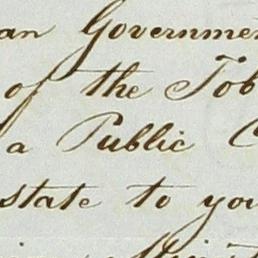 an Governmen
of the Tob
a Public C
state to you